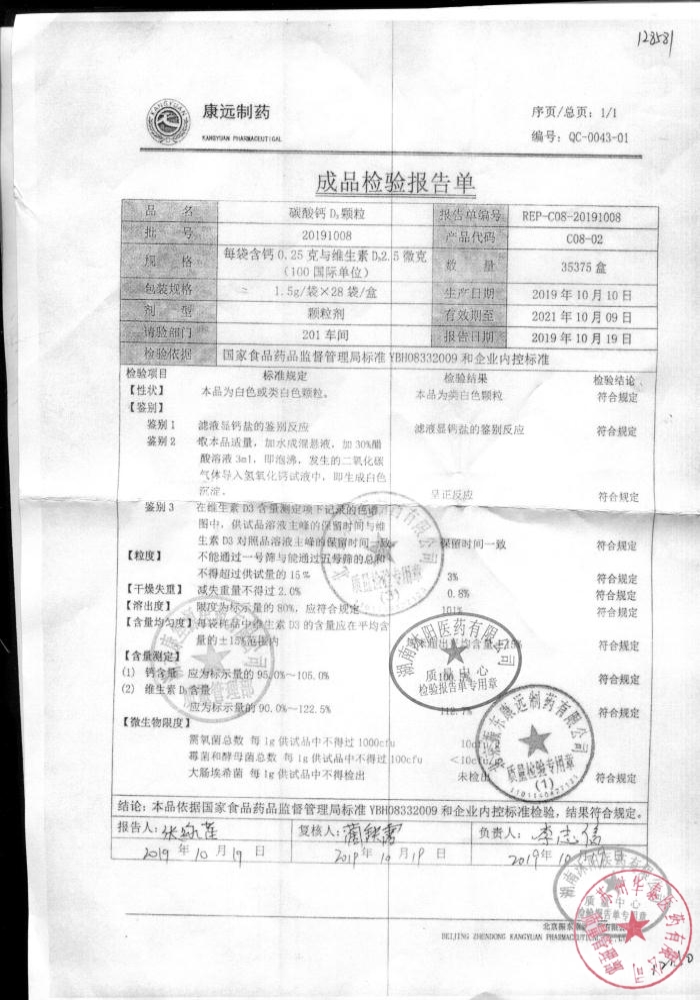 123581
康远制药
KANGYUAN PHARMACEUTICAL
序页/总页：1/1
编号：QC-0043-01
成品检验报告单
品 名 碳酸钙D₃颗粒 报告单编号 REP-C08-20191008
批 号 20191008 产品代码 C08-02
规 格 每袋含钙0.25克与维生素D₃2.5微克（100国际单位） 数 量 35375盒
包装规格 1.5g/袋×28袋/盒 生产日期 2019年10月10日
剂 型 颗粒剂 有效期至 2021年10月09日
请验部门 201车间 报告日期 2019年10月19日
检验依据 国家食品药品监督管理局标准YBH08332009和企业内控标准
检验项目 标准规定 检验结果 检验结论
【性状】 本品为白色或类白色颗粒。 本品为类白色颗粒 符合规定
【鉴别】
鉴别1 滤液显钙盐的鉴别反应 滤液显钙盐的鉴别反应 符合规定
鉴别2 取本品适量，加水成混悬液，加30%醋
酸溶液3ml，即泡沸，发生的二氧化碳
气体导入氢氧化钙试液中，即生成白色
沉淀。 呈正反应 符合规定
鉴别3 在维生素D3含量测定项下记录的色谱
图中，供试品溶液主峰的保留时间与维
生素D3对照品溶液主峰的保留时间一致 保留时间一致 符合规定
【粒度】 不能通过一号筛与能通过五号筛的总和
不得超过供试量的15% 3% 符合规定
【干燥失重】 减失重量不得过2.0% 0.8% 符合规定
【溶出度】 限度为标示量的80%，应符合规定 101% 符合规定
【含量均匀度】 每袋样品中维生素D3的含量应在平均含
量的±15%范围内 符合规定
【含量测定】
(1) 钙含量 应为标示量的95.0%~105.0% 符合规定
(2) 维生素D₃含量
应为标示量的90.0%~122.5% 符合规定
【微生物限度】
需氧菌总数 每1g供试品中不得过1000cfu
霉菌和酵母菌总数 每1g供试品中不得过100cfu
大肠埃希菌 每1g供试品中不得检出 未检出 符合规定
结论：本品依据国家食品药品监督管理局标准YBH08332009和企业内控标准检验，结果符合规定。
报告人： 复核人： 负责人：李志信
2019年10月19日 2019年10月19日 2019年10月19日
湖南沐阳医药有限公司
质量中心
检验报告单专用章
北京振东康远制药有限公司
质量检验专用章
(1)
质量检验专用章
(3)
质量中心
BEIJING ZHENDONG KANGYUAN PHARMACEUTICAL